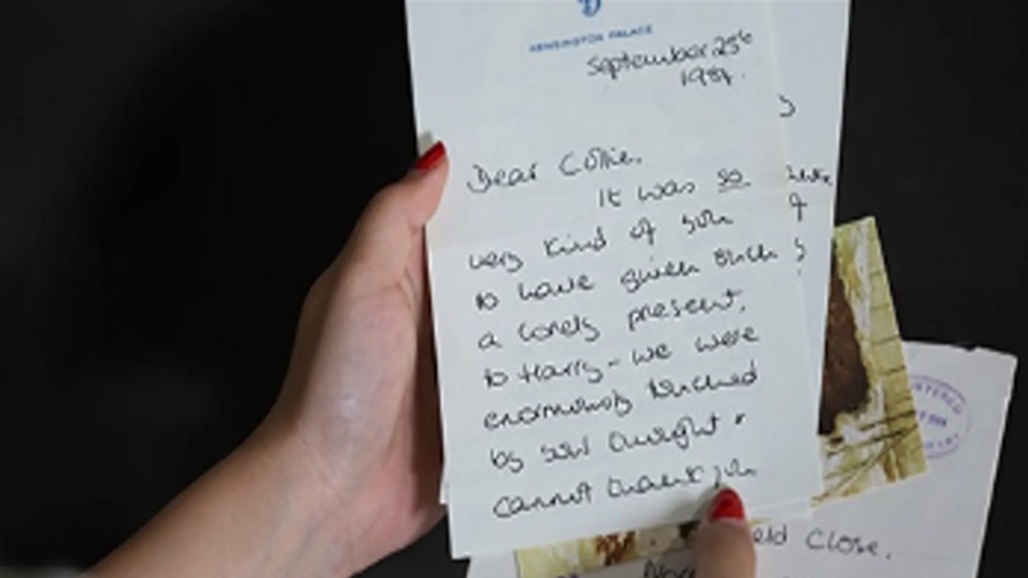 KENSINGTON PALACE
September 25th
1984.
Dear Cyttie,
It was so
very kind of you
to have given such
a lovely present,
to Harry - we were
enormously touched
by your thought &
cannot thank you
eld Close.